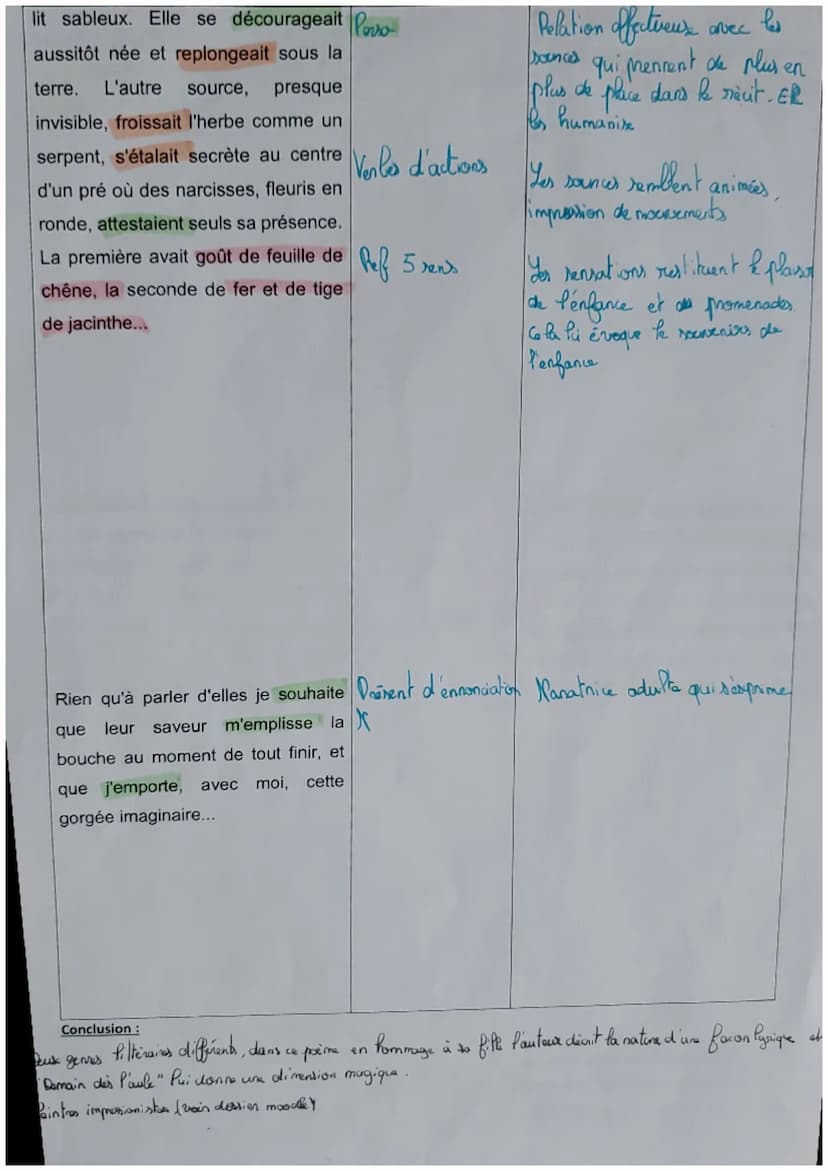 lit sableux. Elle se décourageait
aussitôt née et replongeait sous la
terre. L'autre source, presque
invisible, froissait l'herbe comme un
serpent, s'étalait secrète au centre
d'un pré où des narcisses, fleuris en
ronde, attestaient seuls sa présence.
La première avait goût de feuille de
chêne, la seconde de fer et de tige
de jacinthe...
Rien qu'à parler d'elles je souhaite
que leur saveur m'emplisse la
bouche au moment de tout finir, et
que j'emporte, avec moi, cette
gorgée imaginaire...
Perso
Verbes d'actions
Ref 5 sens
Présent d'énnonciation
Relation affectueuse avec les
sources qui prennent de plus en
plus de place dans le récit. Elle
les humanise
Les sources semblent animées,
impression de mouvements
Les sensations restituent le plaisir
de l'énfance et promenades.
Cela lui évoque le souvenirs de
l'enfance
Narratrice adulte qui s'exprime
Conclusion :
Deux genres littéraires différents, dans ce poème en hommage à sa fille l'auteur décrit la nature d'une facon lyrique et
"Demain dès l'aube" lui donne une dimension magique.
Peintres impressionistes (voir dossier moodle)